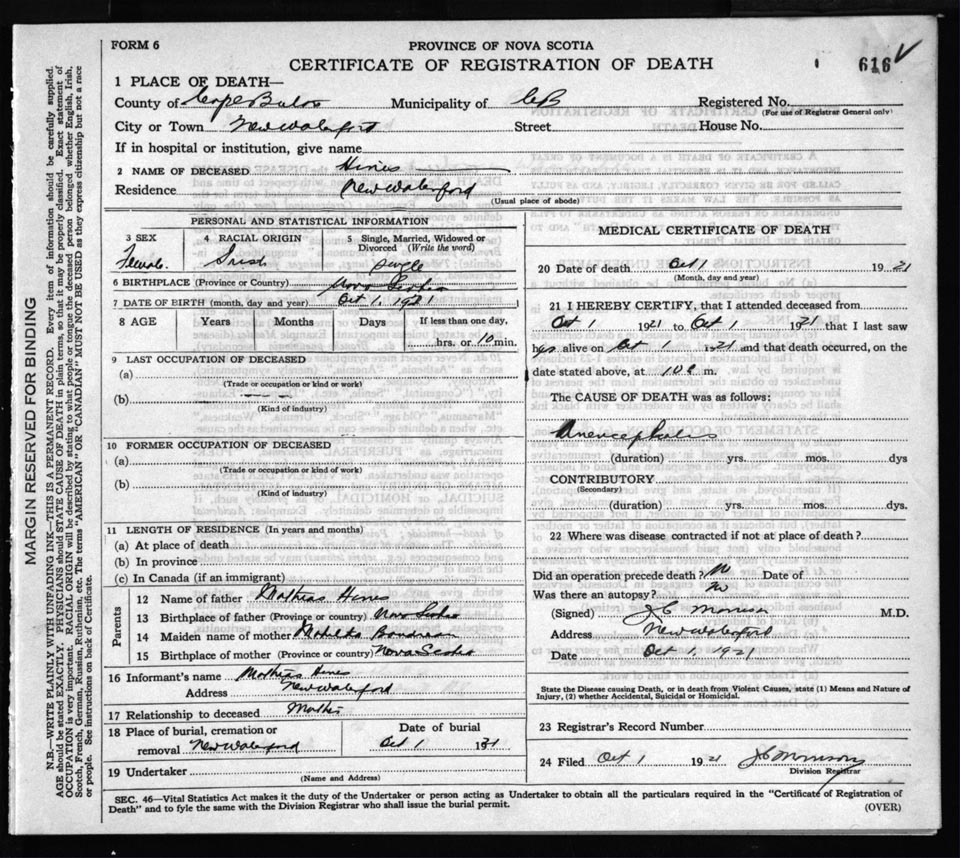 FORM 6
PROVINCE OF NOVA SCOTIA
CERTIFICATE OF REGISTRATION OF DEATH
616
1 PLACE OF DEATH—
County of Cape Breton Municipality of CB Registered No.
(For use of Registrar General only)
City or Town New Waterford Street House No.
If in hospital or institution, give name
2 NAME OF DECEASED Hines
Residence New Waterford
(Usual place of abode)
PERSONAL AND STATISTICAL INFORMATION
3 SEX 4 RACIAL ORIGIN 5 Single, Married, Widowed or Divorced (Write the word)
Female Irish Single
6 BIRTHPLACE (Province or Country) Nova Scotia
7 DATE OF BIRTH (month, day and year) Oct 1. 1921
8 AGE Years Months Days If less than one day,
hrs. or 10 min.
9 LAST OCCUPATION OF DECEASED
(a)
(Trade or occupation or kind or work)
(b)
(Kind of industry)
10 FORMER OCCUPATION OF DECEASED
(a)
(Trade or occupation or kind of work)
(b)
(Kind of industry)
11 LENGTH OF RESIDENCE (In years and months)
(a) At place of death
(b) In province
(c) In Canada (if an immigrant)
Parents
12 Name of father Mathias Hines
13 Birthplace of father (Province or country) Nova Scotia
14 Maiden name of mother Boudreau
15 Birthplace of mother (Province or country) Nova Scotia
16 Informant's name Mathias Hines
Address New Waterford
17 Relationship to deceased
18 Place of burial, cremation or removal New Waterford
Date of burial
Oct 1 1921
19 Undertaker
(Name and Address)
MEDICAL CERTIFICATE OF DEATH
20 Date of death Oct 1 1921
(Month, day and year)
21 I HEREBY CERTIFY, that I attended deceased from
Oct 1 1921 to Oct 1 1921 that I last saw
alive on Oct 1 1921 and that death occurred, on the
date stated above, at m.
The CAUSE OF DEATH was as follows:
Anencephalus
(duration) yrs. mos. dys
CONTRIBUTORY
(Secondary)
(duration) yrs. mos. dys.
22 Where was disease contracted if not at place of death?
Did an operation precede death? No Date of
Was there an autopsy? No
(Signed) J C Morrison M.D.
Address New Waterford
Date Oct 1, 1921
State the Disease causing Death, or in death from Violent Causes, state (1) Means and Nature of
Injury, (2) whether Accidental, Suicidal or Homicidal.
23 Registrar's Record Number
24 Filed Oct 1 1921 J C Morrison
Division Registrar
SEC. 46—Vital Statistics Act makes it the duty of the Undertaker or person acting as Undertaker to obtain all the particulars required in the "Certificate of Registration of
Death" and to fyle the same with the Division Registrar who shall issue the burial permit.
(OVER)
MARGIN RESERVED FOR BINDING
N.B.—WRITE PLAINLY WITH UNFADING INK—THIS IS A PERMANENT RECORD. Every item of information should be carefully supplied.
AGE should be stated EXACTLY. PHYSICIANS should STATE CAUSE OF DEATH in plain terms, so that it may be properly classified. Exact statement of
OCCUPATION is very important. RACIAL ORIGIN will be described by stating to what people or tongue the deceased person belonged whether English, Irish,
Scotch, French, German, Russian, Ruthenian, etc. The terms "AMERICAN" OR "CANADIAN" MUST NOT BE USED as they express citizenship but not a race
or people. See instructions on back of Certificate.